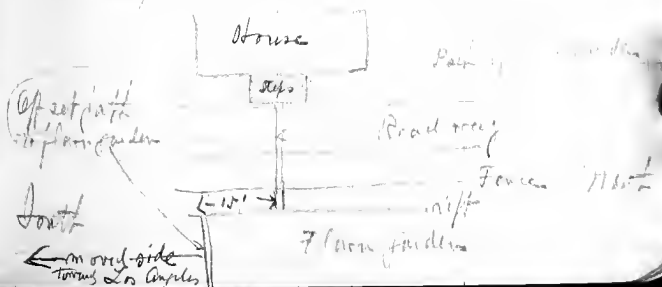 House
steps
Offset path
in flower garden
Road way
Fence North
15'
South
Flower garden
moved side
toward Los Angeles